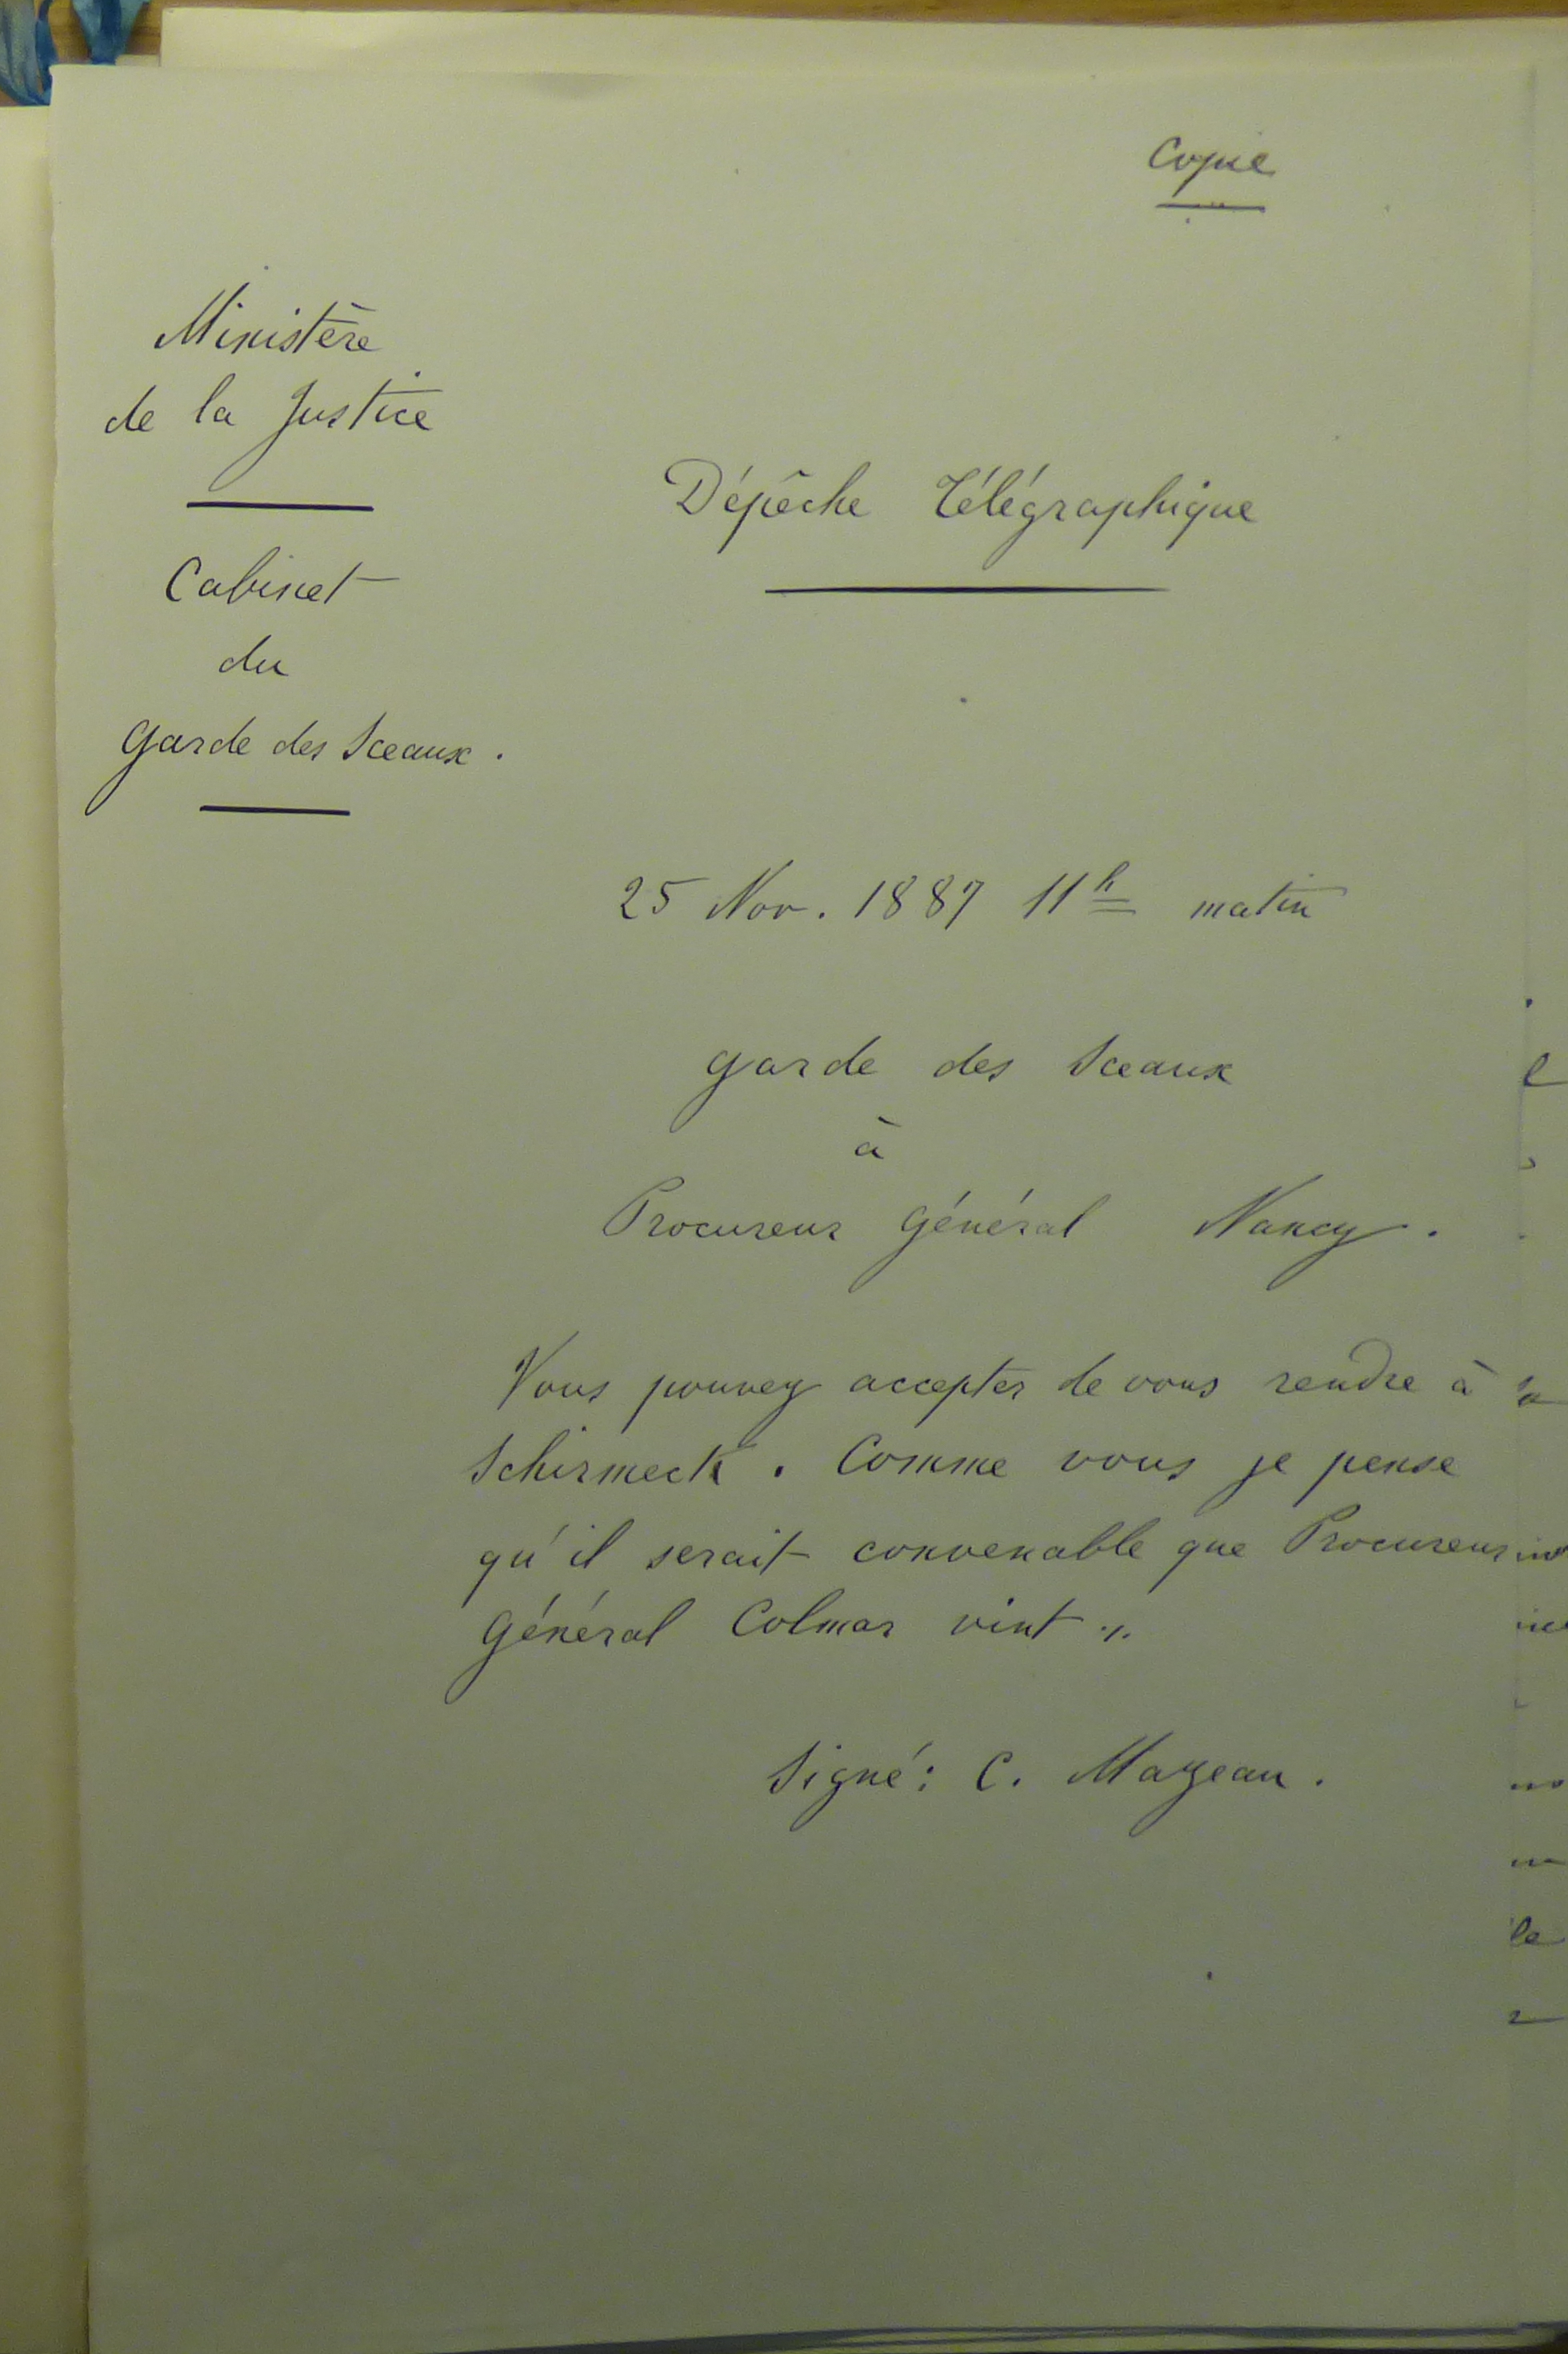 Copie
Ministère
de la Justice
Cabinet
du
Garde des Sceaux.
Dépêche Télégraphique
25 Nov. 1887 11h matin
Garde des Sceaux
à
Procureur Général Nancy.
Vous pouvez accepter de vous rendre à
Schirmeck. Comme vous je pense
qu'il serait convenable que Procureur
Général Colmar vint ./.
Signé: C. Mazeau.